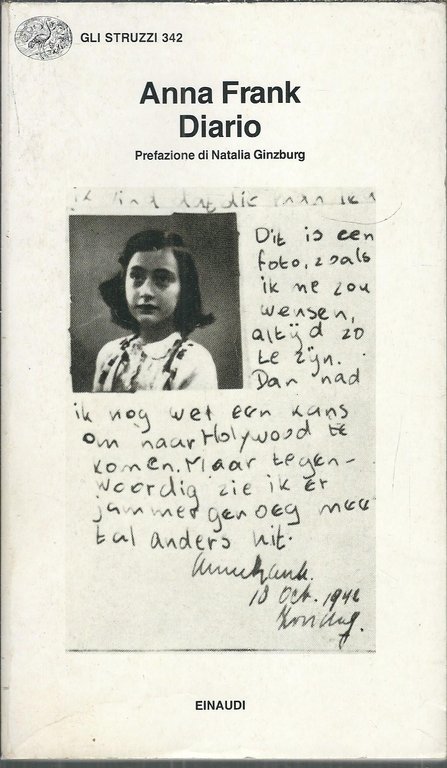 GLI STRUZZI 342
Anna Frank
Diario
Prefazione di Natalia Ginzburg
Dit is een
foto, zoals
ik me zou
wensen,
altijd zo
te zijn.
Dan had
ik nog wel een kans
om naar Holywood te
komen. Maar tegen-
woordig zie ik er
jammer genoeg mee
tal anders uit.
Annefrank.
18 Oct. 1942
EINAUDI